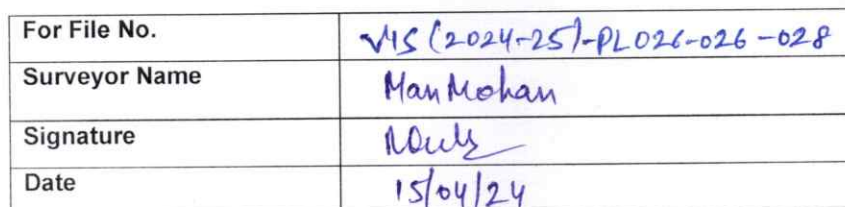 For File No. VIS (2024-25)-PL026-026-028
Surveyor Name Man Mohan
Signature
Date 15/04/24